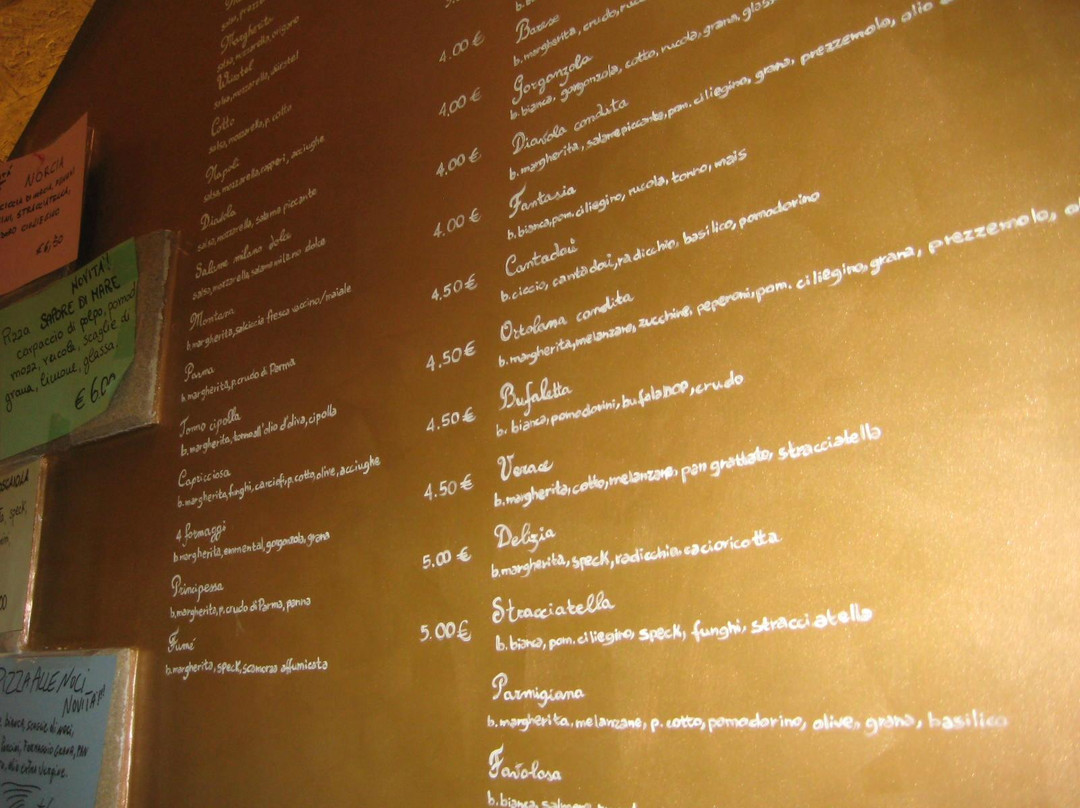 NORCIA
STRACCIATELLA,
€6,50
NOVITA'!
Pizza SAPORE DI MARE
carpaccio di polpo, pomod
mozz, rucola, scaglie di
grana, limone, glassa
€ 6.00
speck
PIZZA ALLE NOCI
NOVITA'!!
bianca, scaglie di noci,
Margherita
salsa, mozzarella, origano
Wurstel
salsa, mozzarella, wurstel
4.00 €
Cotto
salsa, mozzarella, p. cotto
4.00 €
Napoli
salsa, mozzarella, capperi, acciughe
4.00 €
Diavola
salsa, mozzarella, salame piccante
4.00 €
Salame milano dolce
salsa, mozzarella, salame milano dolce
4.50 €
Montana
b.margherita, salsiccia fresca suino/maiale
4.50 €
Parma
margherita, p.crudo di Parma
4.50 €
Tonno cipolla
b.margherita, tonno all'olio d'oliva, cipolla
4.50 €
Capricciosa
b.margherita, funghi, carciofi, p.cotto, olive, acciughe
5.00 €
4 formaggi
b.margherita, emmental, gorgonzola, grana
5.00 €
Principessa
b.margherita, p.crudo di Parma, panna
Fumé
b.margherita, speck, scamorza affumicata
Barese
b.margherita, crudo,
Gorgonzola
b.bianca, gorgonzola, cotto, rucola, grana,
Diavola condita
b.margherita, salame piccante, pom. ciliegino, grana, prezzemolo, olio
Fantasia
b.bianca, pom. ciliegino, rucola, tonno, mais
Cantadoi
b.ciccio, cantadoi, radicchio, basilico, pomodorino
Ortolana condita
b.margherita, melanzane, zucchine, peperoni, pom. ciliegino, grana, prezzemolo,
Bufaletta
b. bianca, pomodorini, bufala DOP, crudo
Verace
b.margherita, cotto, melanzane, pan grattato, stracciatella
Delizia
b.margherita, speck, radicchio cacioricotta
Stracciatella
b.bianca, pom. ciliegino, speck, funghi, stracciatella
Parmigiana
b.margherita, melanzane, p. cotto, pomodorino, olive, grana, basilico
Favolosa
b.bianca,